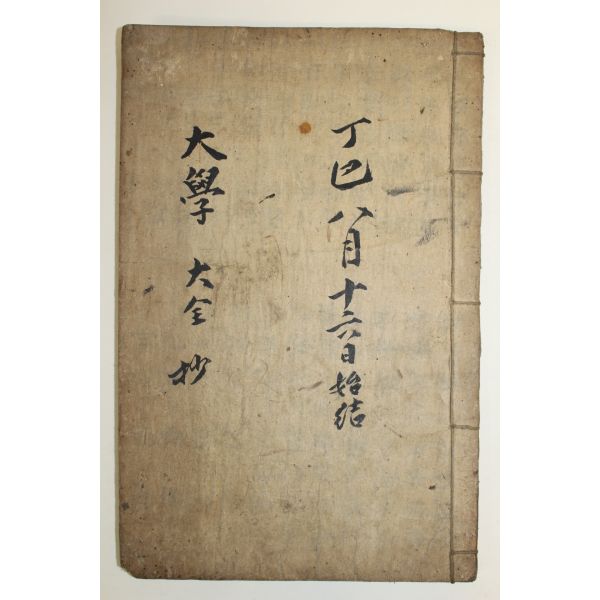 丁巳八月十六日始結
大學 大全 抄